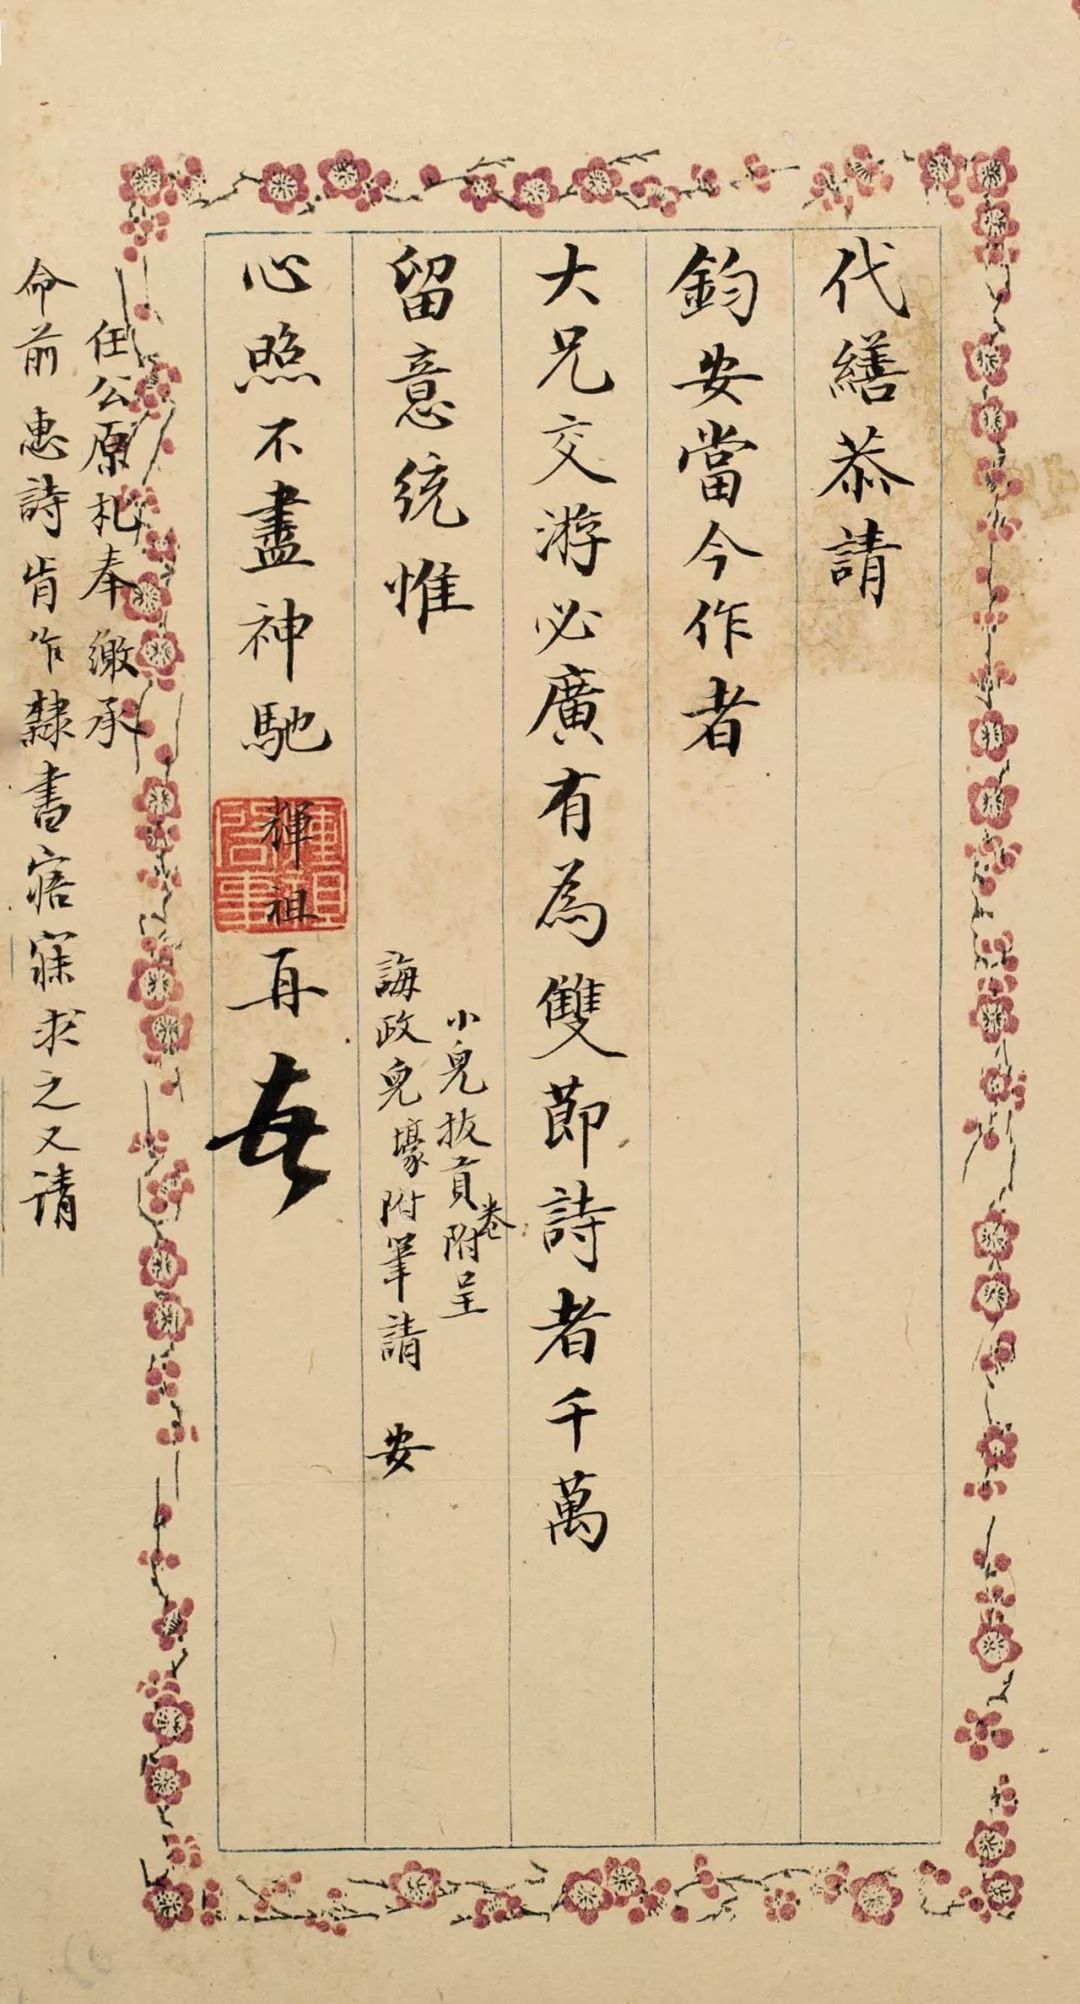 代繕恭請
鈞安當今作者
大兄交游必廣有為雙節詩者千萬
留意統惟
小兒拔貢卷附呈
誨政兒壕附筆請 安
心照不盡神馳輝祖再
任公原札奉繳承
命前惠詩肯作隸書寤寐求之又请
輝祖啓事